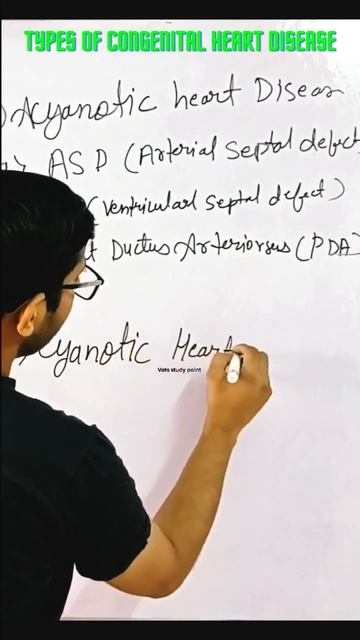 TYPES OF CONGENITAL HEART DISEASE
Acyanotic heart Diseas
ASD (Arterial Septal defect
(ventricular Septal defect)
t Ductus Arteriorsus (PDA)
Cyanotic Heart
Vats study point